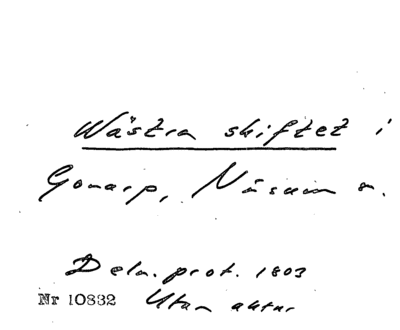 Wästra skiftet i
Gonarp, Näsum s.
Deln. prot. 1803
Nr 10832 Utan aktnr